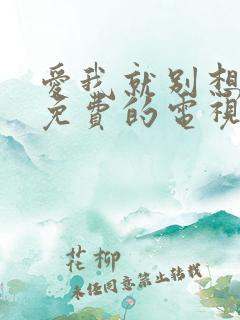 愛我就別想
免費的電視
花柳
未經同意禁止轉載